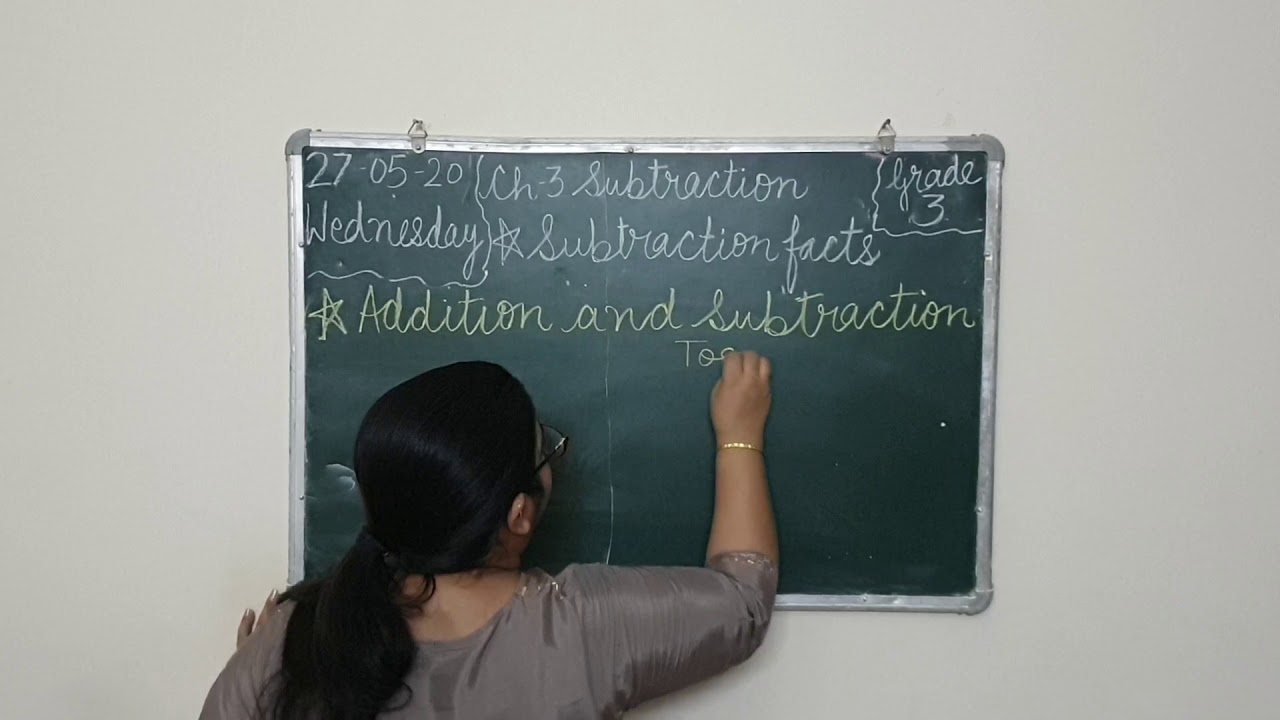 27-05-20
Wednesday
Ch-3 Subtraction
Grade
3
☆ Subtraction facts
☆ Addition and Subtraction